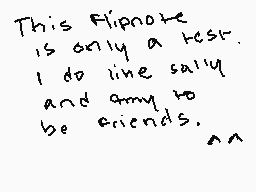 This Flipnote
is only a test.
I do like sally
and amy to
be friends.
^^